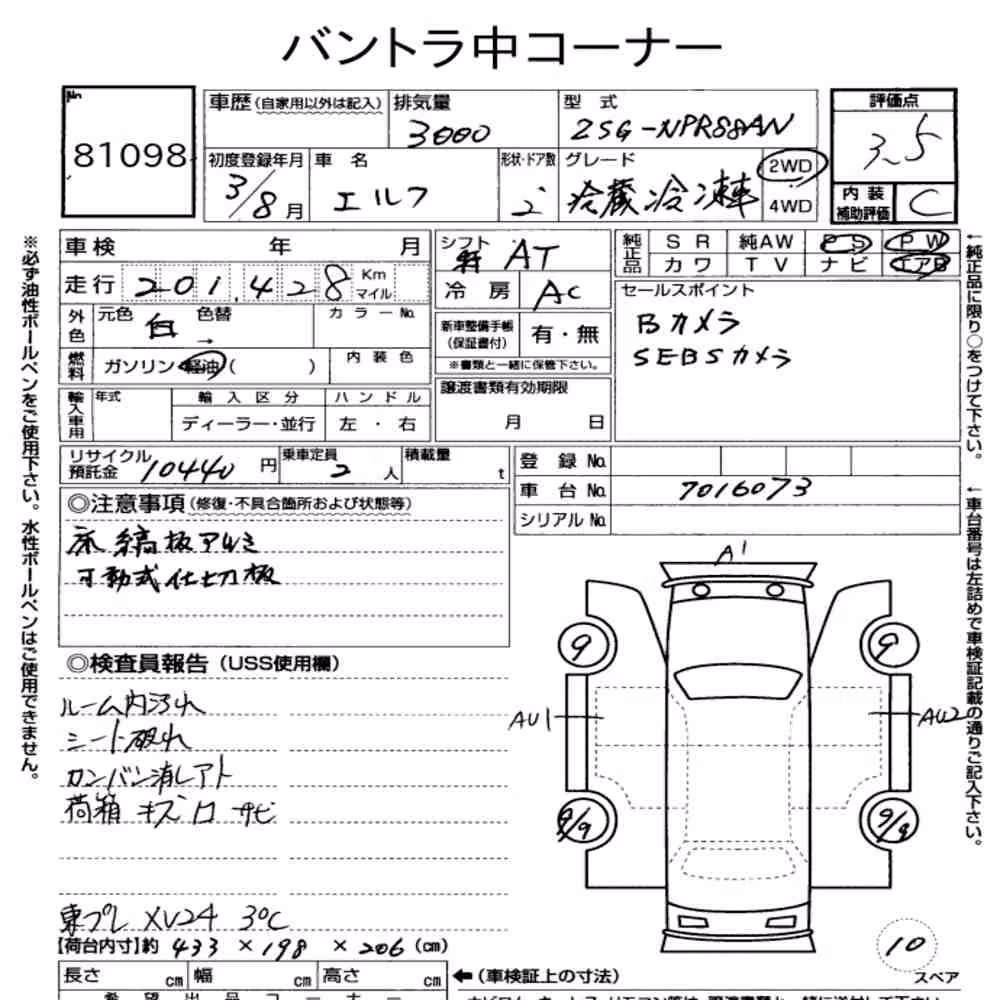 バントラ中コーナー
No.
81098
車歴(自家用以外は記入)
排気量
3000
型式
2SG-NPR88AN
評価点
3.5
初度登録年月
3/8月
車名
エルフ
形状・ドア数
2
グレード
冷蔵冷凍車
2WD
4WD
内装
補助評価
C
車検 年 月
走行 201,428 Km
マイル
シフト AT
冷房 AC
純正品
SR 純AW PS PW
カワ TV ナビ エアB
外色
元色 白 色替 →
カラーNo.
燃料
ガソリン・軽油( )
内装色
新車整備手帳
(保証書付)
有・無
※書類と一緒に保管下さい。
セールスポイント
Bカメラ
SEBSカメラ
輸入車用
年式
輸入区分
ディーラー・並行
ハンドル
左・右
譲渡書類有効期限
月 日
リサイクル
預託金 10440 円
乗車定員 2 人
積載量 t
登録No.
車台No. 7016073
シリアルNo.
◎注意事項(修復・不具合箇所および状態等)
床縞板アルミ
可動式仕切板
◎検査員報告(USS使用欄)
ルーム内汚れ
シート破れ
カンバン消しアト
荷箱 キズ 凹 サビ
東プレ XV24 3℃
【荷台内寸】約 433 × 198 × 206 (cm)
長さ cm 幅 cm 高さ cm
←(車検証上の寸法)
希望出品コーナー
A1
9
9
AU1
AU2
9/9
9/9
10
スペア
※必ず油性ボールペンをご使用下さい。水性ボールペンはご使用できません。
←純正品に限り○をつけて下さい。
←車台番号は左詰めで車検証記載の通りご記入下さい。